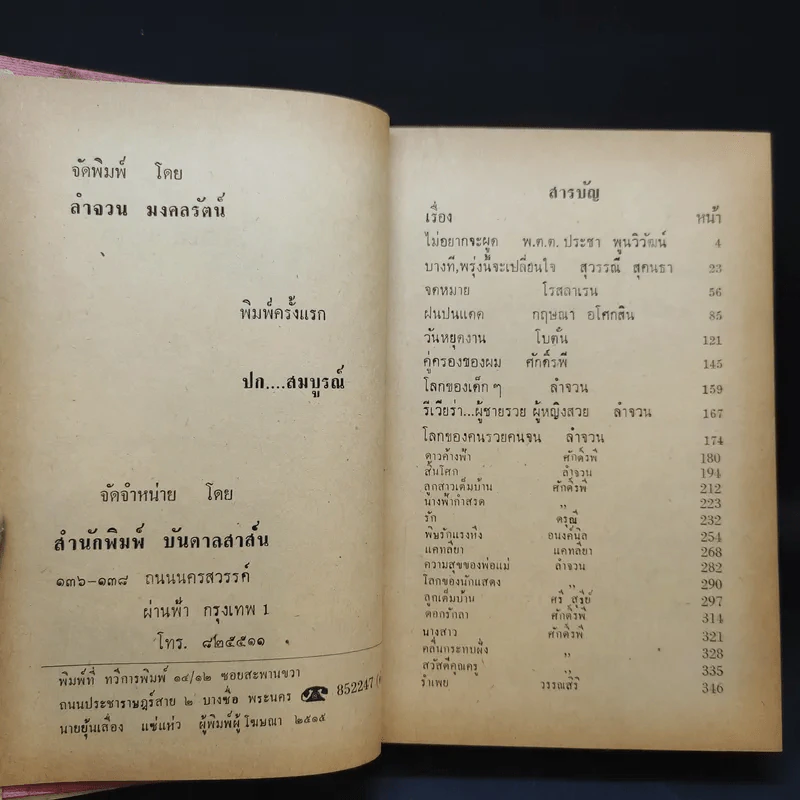 จัดพิมพ์ โดย
ลำจวน มงคลรัตน์
พิมพ์ครั้งแรก
ปก....สมบูรณ์
จัดจำหน่าย โดย
สำนักพิมพ์ บันดาลสาส์น
๑๓๖-๑๓๘ ถนนนครสวรรค์
ผ่านฟ้า กรุงเทพ 1
โทร. ๘๒๕๕๑๑
พิมพ์ที่ ทวีการพิมพ์ ๑๔/๑๒ ซอยสะพานขวา
ถนนประชาราษฎร์สาย ๒ บางซื่อ พระนคร ☎ 852247
นายยุ้นเลื่อง แซ่แห่ว ผู้พิมพ์ผู้โฆษณา ๒๕๑๕
สารบัญ
เรื่อง หน้า
ไม่อยากจะผูด พ.ต.ต. ประชา พูนวิวัฒน์ 4
บางที,พรุ่งนี้จะเปลี่ยนใจ สุวรรณี สุคนธา 23
จดหมาย โรสลาเรน 56
ฝนปนแดด กฤษณา อโศกสิน 85
วันหยุดงาน โบตั๋น 121
คู่ครองของผม ศักดิ์รพี 145
โลกของเด็ก ๆ ลำจวน 159
รีเวียร่า...ผู้ชายรวย ผู้หญิงสวย ลำจวน 167
โลกของคนรวยคนจน ลำจวน 174
ดาวค้างฟ้า ศักดิ์รพี 180
สิ้นโศก ลำจวน 194
ลูกสาวเต็มบ้าน ศักดิ์รพี 212
นางฟ้ากำสรด ,, 223
รัก ดรุณี 232
พิษรักแรงหึง อนงค์นิล 254
แคทลียา แคทลียา 268
ความสุขของพ่อแม่ ลำจวน 282
โลกของนักแสดง ,, 290
ลูกเต็มบ้าน ศรี สุริย์ 297
ดอกรักลา ศักดิ์รพี 314
นางสาว ศักดิ์รพี 321
คลื่นกระทบฝั่ง ,, 328
สวัสดีคุณครู ,, 335
รำเพย วรรณสิริ 346